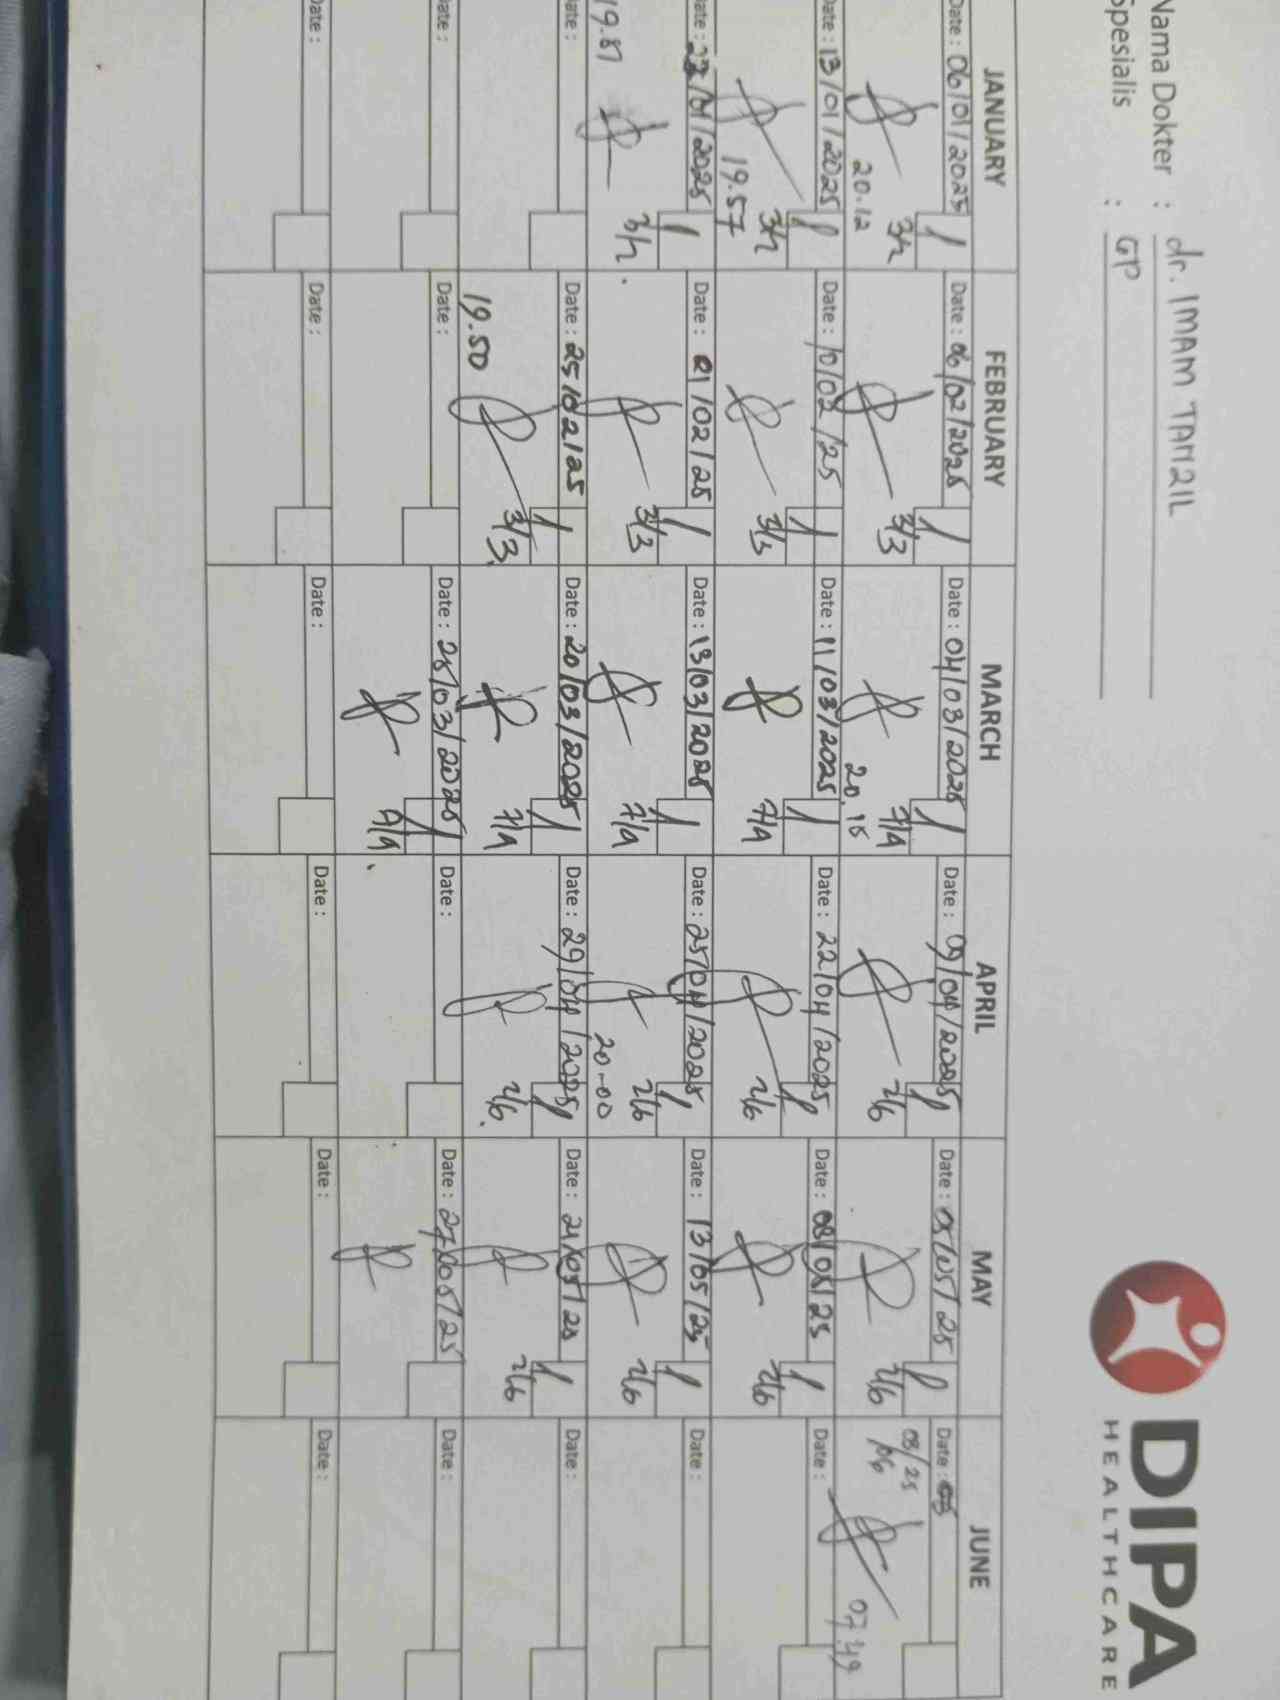 Nama Dokter : dr. IMAM TANZIL
Spesialis : GP
DIPA
HEALTHCARE
JANUARY
FEBRUARY
MARCH
APRIL
MAY
JUNE
Date : 06/01/2025
20.12
Date : 06/02/2025
3/3
Date : 04/03/2025
20.15
Date : 09/04/2025
2/6
Date : 05/05/25
2/6
Date :
03/25
/06
07.49
Date : 13/01/2025
19.57
Date : 10/02/25
3/3
Date : 11/03/2025
Date : 22/04/2025
2/6
Date : 08/05/25
2/6
Date :
Date : 23/01/2025
Date : 21/02/25
3/3
Date : 13/03/2025
Date : 25/04/2025
2/6
20.00
Date : 13/05/25
2/6
Date :
Date :
Date : 25/02/25
3/3
19.50
Date : 20/03/2025
Date : 29/04/2025
2/6
Date : 21/05/25
2/6
Date :
Date :
Date :
Date : 25/03/2025
Date :
Date : 27/05/25
Date :
Date :
Date :
Date :
Date :
Date :
Date :